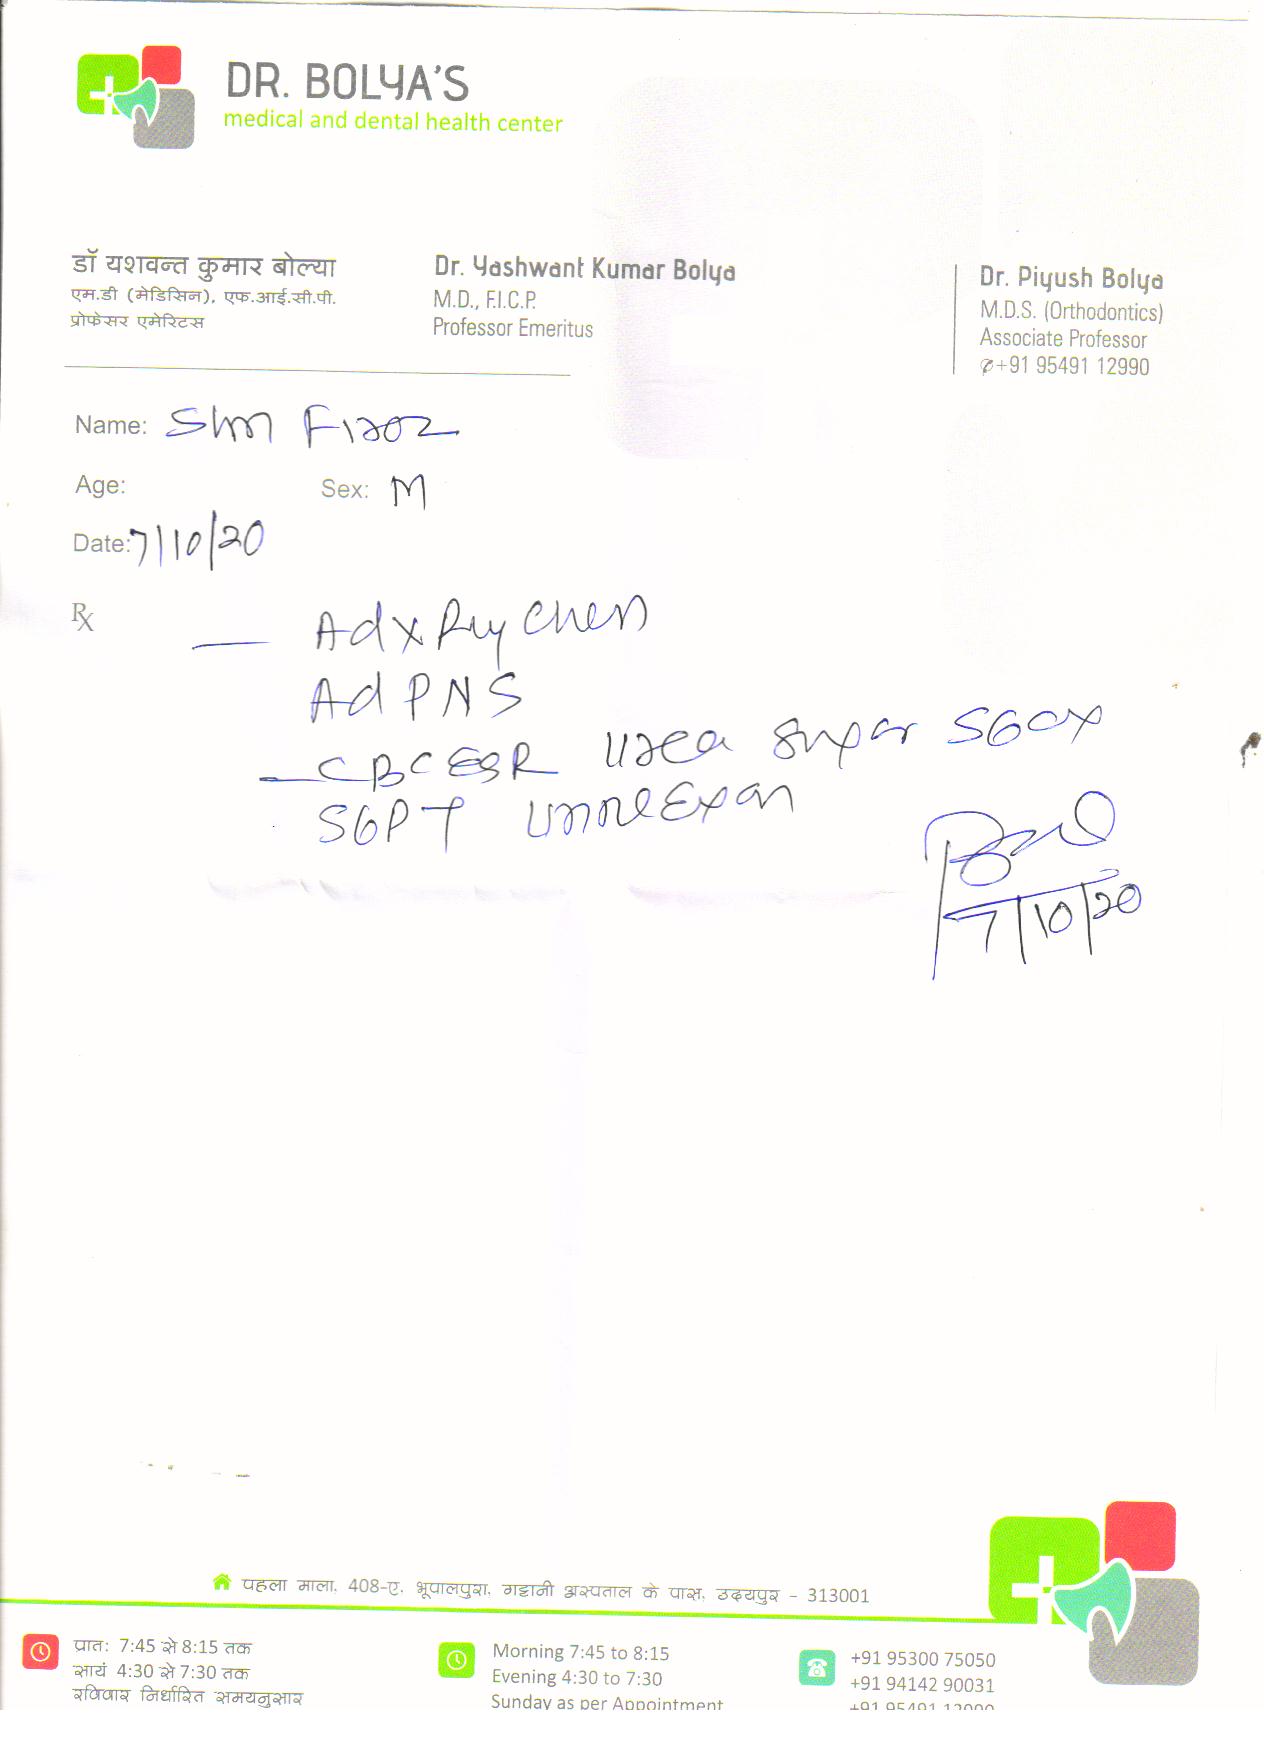 DR. BOLYA'S
medical and dental health center
डॉ यशवन्त कुमार बोल्या
एम.डी (मेडिसिन), एफ.आई.सी.पी.
प्रोफेसर एमेरिटस
Dr. Yashwant Kumar Bolya
M.D., F.I.C.P.
Professor Emeritus
Dr. Piyush Bolya
M.D.S. (Orthodontics)
Associate Professor
✆+91 95491 12990
Name: Shri Firoz
Age: Sex: M
Date: 7/10/20
Rx
Ad X Ray Chest
Ad PNS
CBC ESR Urea Sugar SGOT
SGPT Urine Exam
7/10/20
पहला माला, 408-ए, भूपालपुरा, गट्टानी अस्पताल के पास, उदयपुर - 313001
प्रात: 7:45 से 8:15 तक
सायं 4:30 से 7:30 तक
रविवार निर्धारित समयनुसार
Morning 7:45 to 8:15
Evening 4:30 to 7:30
Sunday as per Appointment
+91 95300 75050
+91 94142 90031
+91 95491 12990